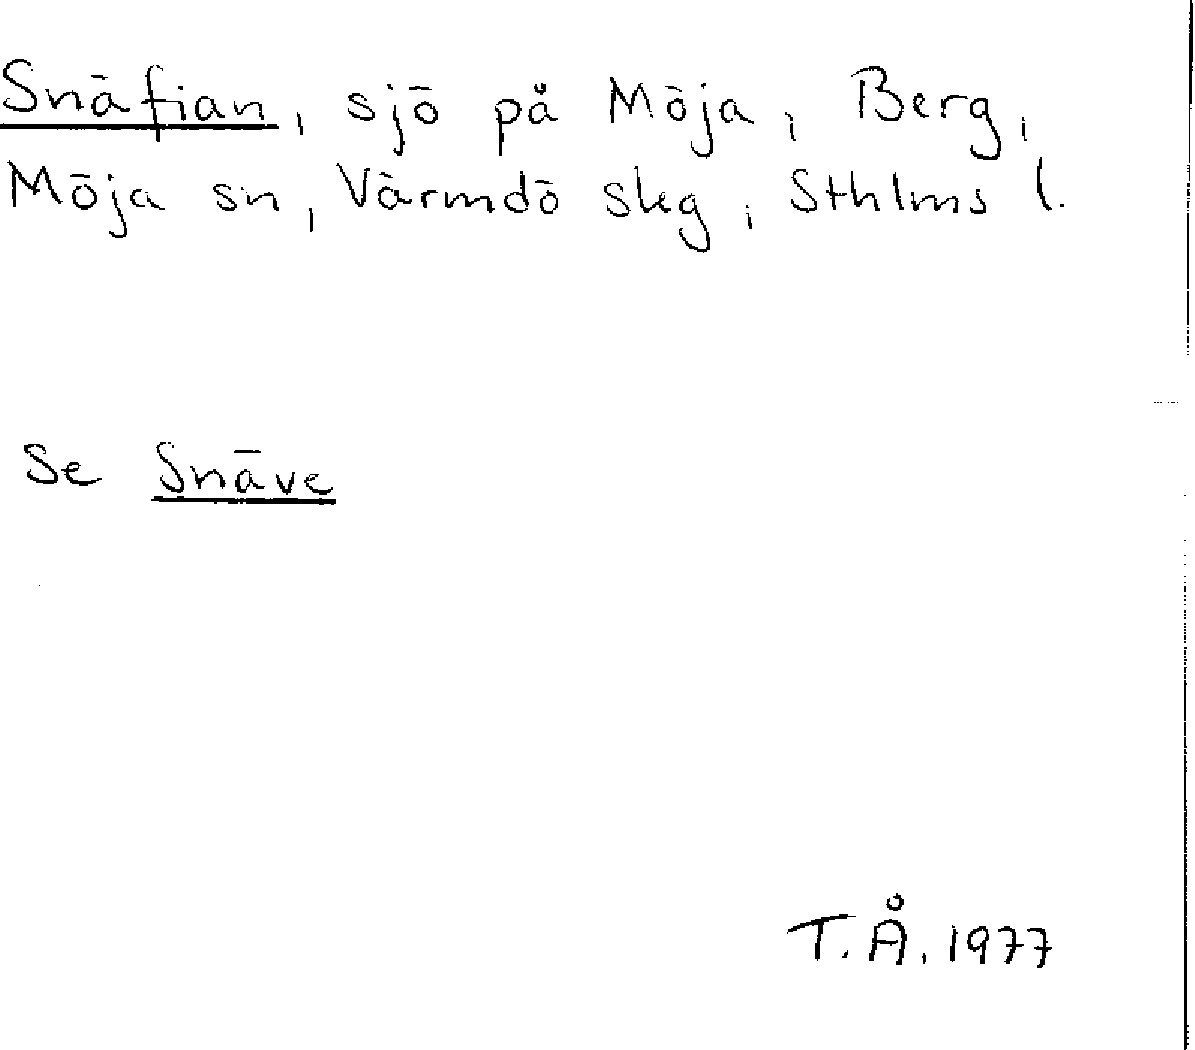 Snäfian, sjö på Möja, Berg,
Möja sn, Värmdö skg, Sthlms l.
Se Snäve
T.Å. 1977